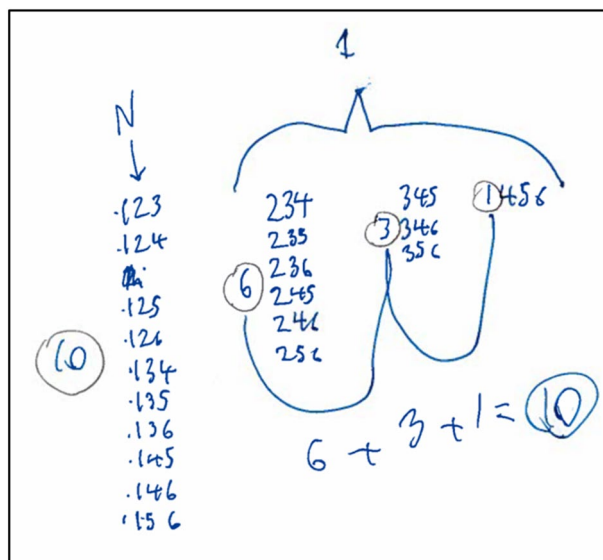 1
N
.123
.124
.125
.126
.134
.135
.136
.145
.146
.156
10
234
235
236
245
246
256
6
345
346
356
3
1 456
6 + 3 + 1 = 10